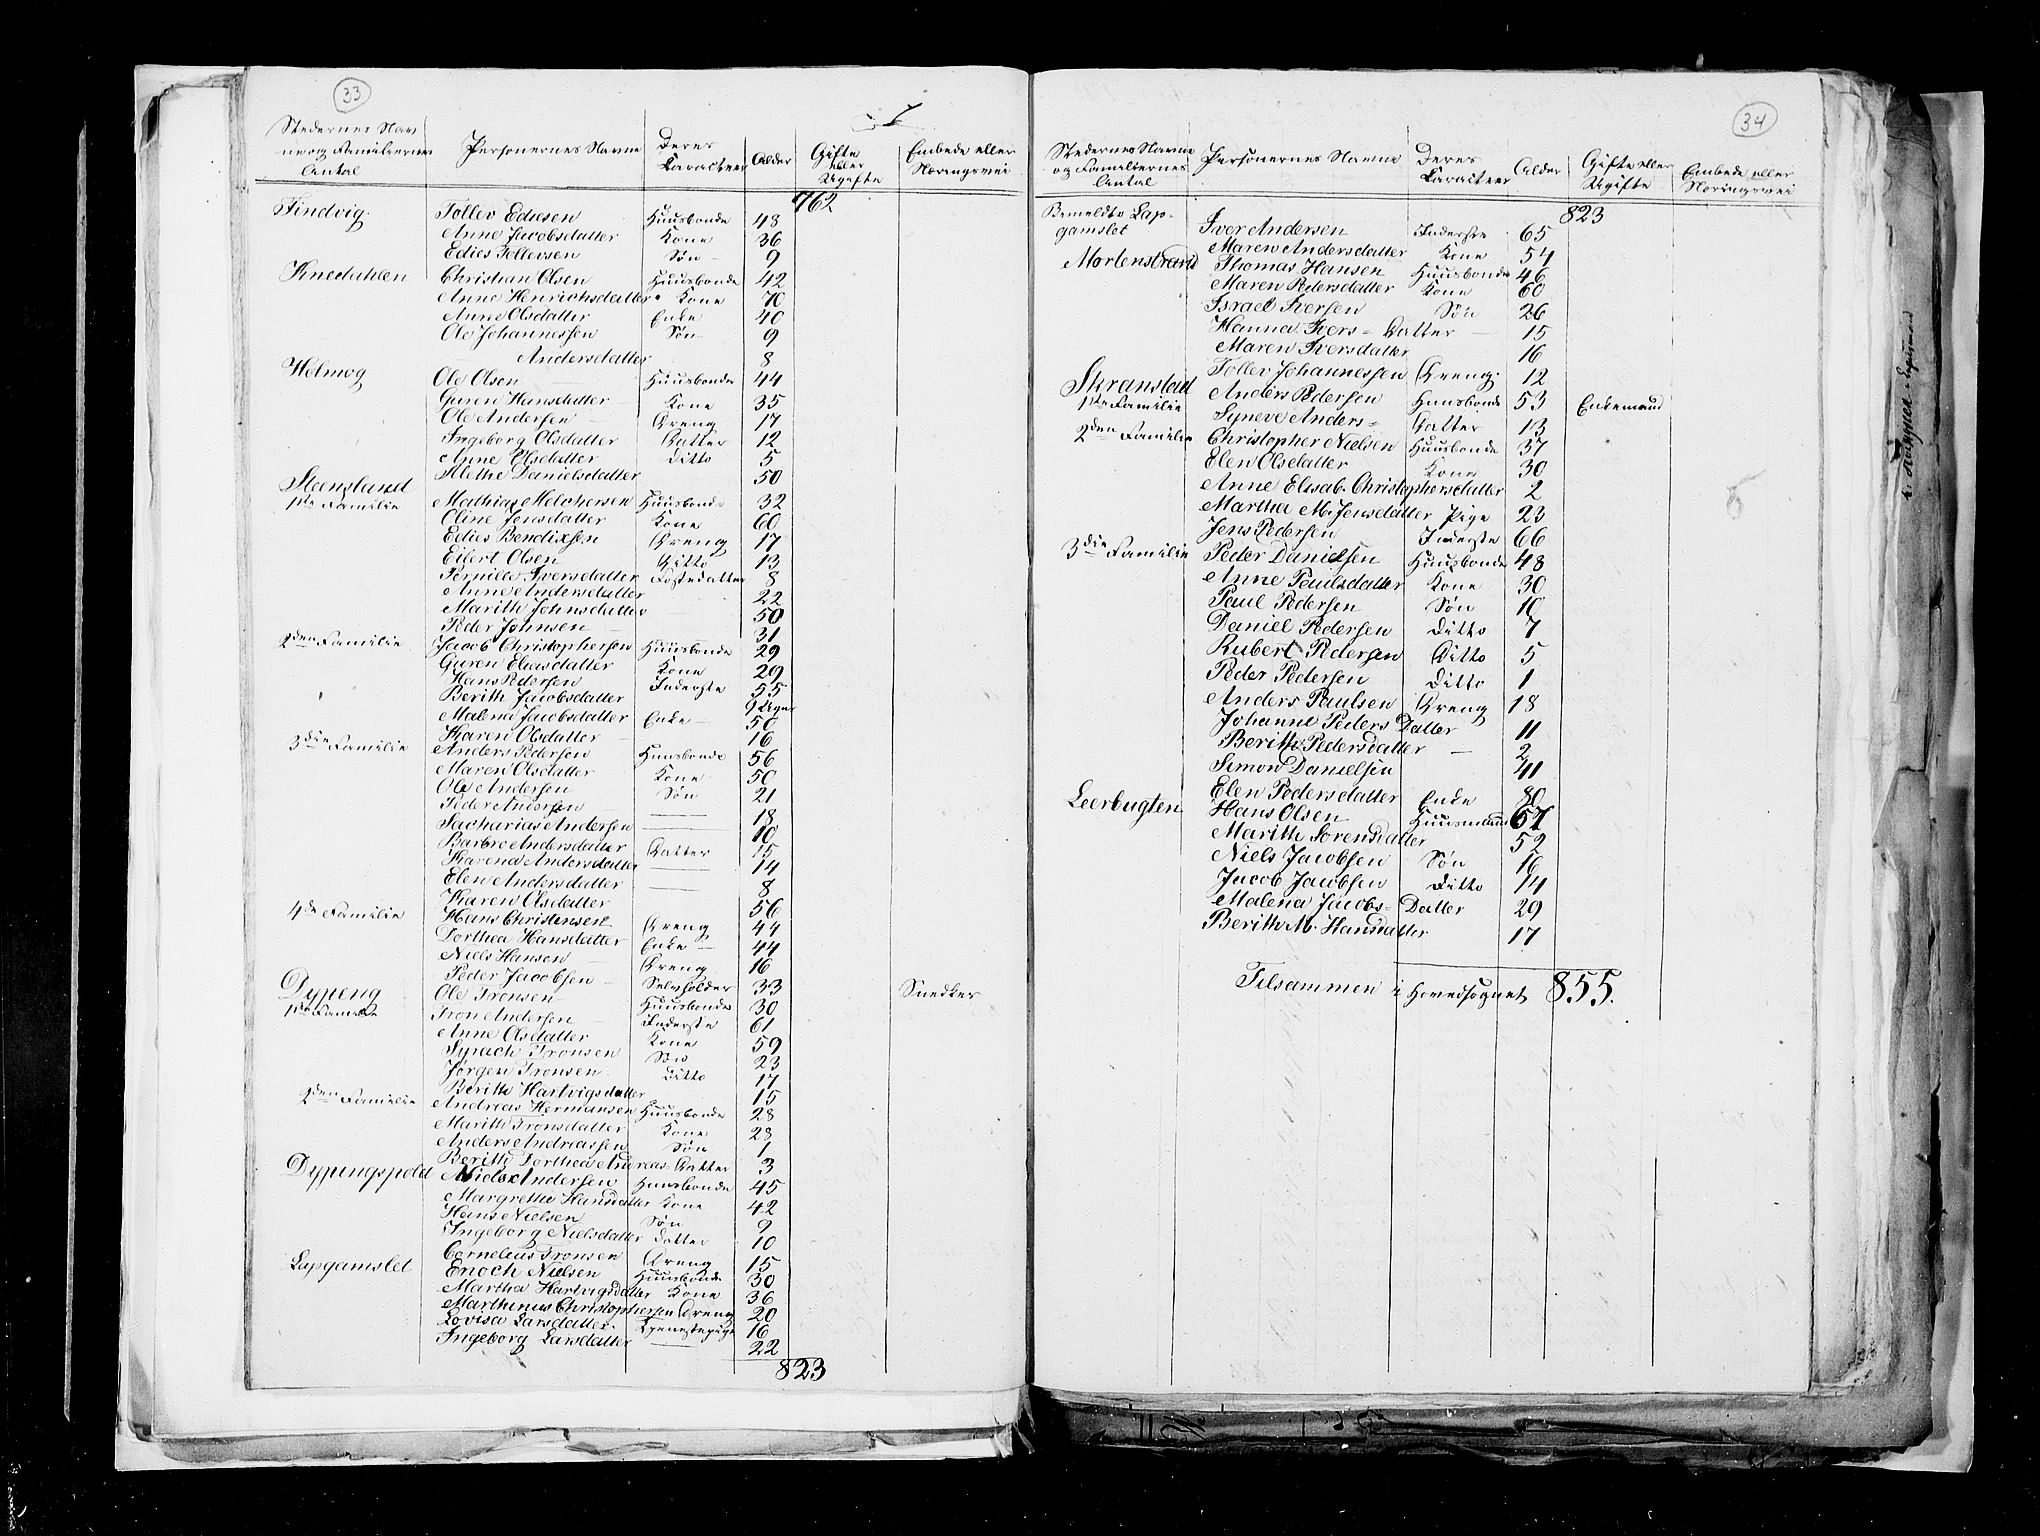 33
Stedernes Nav
ne og Familiernes
Antal
Personernes Navne
Deres
Caracteer
Alder
Gifte
eller
Ugifte
Embede eller
Næringsvei
762
Findvig. Tollev Ediesen Huusbonde 48
Anne Jacobsdatter Kone 36
Edies Tollevsen Søn 9
Knedahlen Christian Olsen Huusbonde 42
Anne Henrichsdatter Kone 70
Anne Olsdatter Enke 40
Ole Johannessen Søn 9
Andersdatter 8
Helmog Ole Olsen Huusbonde 44
Guren Hansdatter Kone 35
Ole Andersen Dreng 17
Ingeborg Olsdatter Datter 12
Anne Olsdatter Ditto 5
Alethe Danielsdatter 50
Steensland
1ste Familie Mathias Melchersen Huusbonde 32
Oline Jensdatter Kone 60
Edies Bendixsen Dreng 17
Eilert Olsen Ditto 13
Pernille Iversdatter Fostedatter 8
Anne Andersdatter 22
Marith Johnsdatter 50
Peder Johnsen 31
2den Familie Jacob Christophersen Huusbonde 29
Guren Eliasdatter Kone 29
Hans Pedersen Inderste 55
Berith Jacobsdatter 9 Uger
Malena Jacobsdatter Enke 50
Karen Olsdatter 16
3die Familie Anders Pedersen Huusbonde 56
Maren Olsdatter Kone 50
Ole Andersen Søn 21
Peder Andersen 18
Sacharias Andersen 10
Barbro Andersdatter Datter 15
Karena Andersdatter 14
Elen Andersdatter 8
Karen Olsdatter 56
4de Familie Hans Christensen Dreng 44
Dorthea Hansdatter Enke 44
Niels Hansen Dreng 16
Peder Jacobsen Selvholder 33
Dypeng Ole Tronsen Huusbonde 30 Snedker
1ste Familie Tron Andersen Inderste 61
Anne Olsdatter Kone 59
Syrach Tronsen Søn 23
Jørgen Tronsen Ditto 17
Berith Hartvigsdatter 15
2den Familie Andreas Hermansen Huusbonde 28
Marith Tronsdatter Kone 28
Anders Andreassen Søn 1
Berith Dorthea Andreas Datter 3
Dypingspold Niels Andersen Huusbonde 45
Margrethe Hansdatter Kone 42
Hans Nielsen Søn 9
Ingeborg Nielsdatter Datter 10
Cornelius Tronsen Dreng 15
Lapgamslet Enoch Nielsen Huusbonde 30
Martha Hartvigsdatter Kone 36
Marthinus Christophersen Dreng 20
Lovisa Larsdatter Tjenestepige 16
Ingeborg Larsdatter 22
823
34
Stedernes Navne
og Familiernes
Antal
Personernes Navne
Deres
Caracteer
Alder
Gifte eller
Ugifte
Embede eller
Næringsvei
823
Bemeldte Lap-
gamslet Iver Andersen Inderste 65
Maren Andersdatter Kone 54
Mortenstrand Thomas Hansen Huusbonde 46
Maren Pedersdatter Kone 60
Israel Iversen Søn 26
Hanna Ivers = Datter 15
Maren Iversdatter 16
Tollev Johannessen Dreng. 12
Skranstad
1ste Familie Anders Pedersen Huusbonde 53 Enkemand
Synneve Anders = Datter 13
2den Familie Christopher Nielsen Huusbonde 37
Elen Olsdatter Kone 30
Anne Elisab. Christophersdatter 2
Martha M. Jensdatter Pige 23
Jens Pedersen Inderste 66
3die Familie Peder Danielsen Huusbonde 48
Anne Paulsdatter Kone 30
Paul Pedersen Søn 10
Daniel Pedersen Ditto 7
Rubert Pedersen Ditto 5
Peder Pedersen Ditto 1
Anders Paulsen Dreng 18
Johanne Peders Datter 11
Berith Pedersdatter 2
Simon Danielsen 41
Elen Pedersdatter Enke 80
Leerbugten Hans Olsen Huusmand 57
Marith Sørensdatter 52
Niels Jacobsen Søn 16
Jacob Jacobsen Ditto 14
Malena Jacobs = Datter 29
Berith M. Hansdatter 17
Tilsammen i Hovedsognet 855.